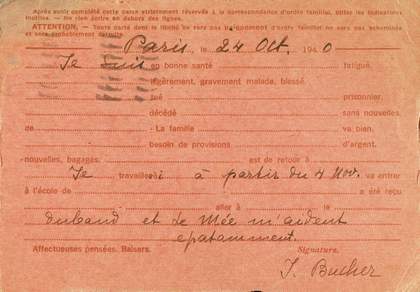 Après avoir complété cette carte strictement réservée à la correspondance d'ordre familial, biffez les indications
inutiles. - Ne rien écrire en dehors des lignes.
ATTENTION. - Toute carte dont le libellé ne sera pas uniquement d'ordre familial ne sera pas acheminée
et sera probablement détruite.
Paris, le 24 Oct. 1940
Je suis en bonne santé fatigué.
légèrement, gravement malade, blessé.
tué prisonnier.
décédé sans nouvelles.
de - La famille va bien.
besoin de provisions d'argent.
nouvelles, bagages. est de retour à
Je travaillerai à partir du 4 Nov. va entrer
à l'école de a été reçu
aller à le
Dubaud et Le Mée m'aident
epatamment.
Affectueuses pensées. Baisers. Signature.
J. Bucher